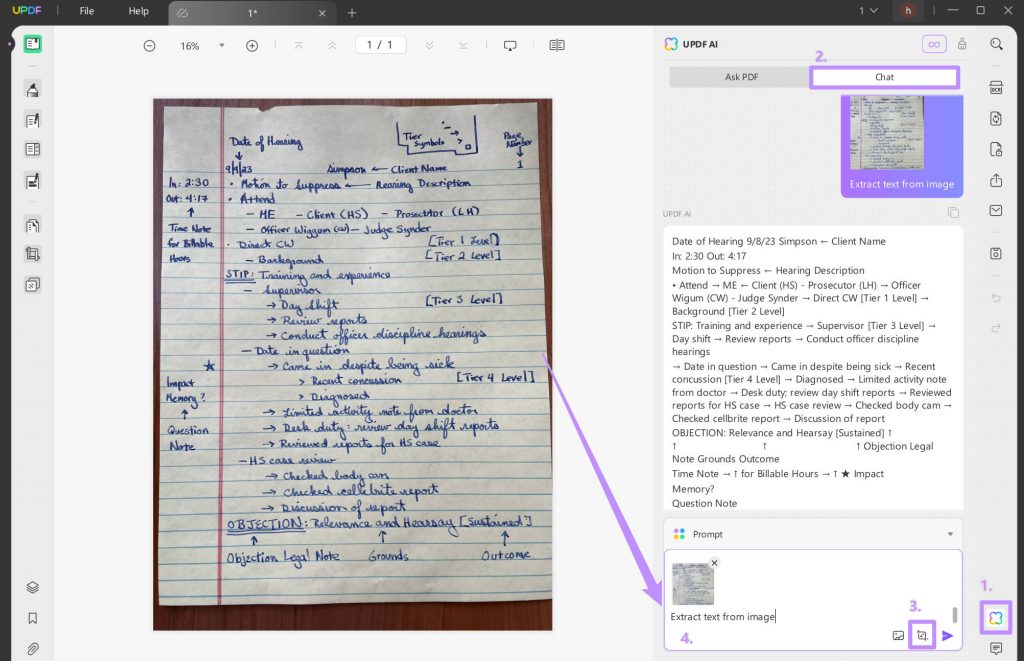 UPDF
File
Help
1*
1
h
16%
1 / 1
Date of Hearing
Tier
Symbols
Page
Number
9/8/23
Simpson ← Client Name
1
In: 2:30
• Motion to Suppress ← Hearing Description
Out: 4:17
• Attend
– ME – Client (HS) – Prosecutor (LH)
Time Note
for Billable
Hours
– Officer Wiggum (CW) – Judge Synder
• Direct CW [Tier 1 Level]
– Background [Tier 2 Level]
STIP: Training and experience
– Supervisor
→ Day shift [Tier 3 Level]
→ Review reports
→ Conduct officer discipline hearings
– Date in question
★ → Came in despite being sick
Impact
Memory?
> Recent concussion [Tier 4 Level]
> Diagnosed
→ Limited activity note from doctor
Question
Note
→ Desk duty: review day shift reports
→ Reviewed reports for HS case
– HS case review
→ Checked body cam
→ Checked cellebrite report
→ Discussion of report
OBJECTION: Relevance and Hearsay [Sustained]
Objection Legal Note Grounds Outcome
UPDF AI
2.
Ask PDF
Chat
Extract text from image
UPDF AI
Date of Hearing 9/8/23 Simpson ← Client Name
In: 2:30 Out: 4:17
Motion to Suppress ← Hearing Description
• Attend → ME ← Client (HS) - Prosecutor (LH) → Officer
Wigum (CW) - Judge Synder → Direct CW [Tier 1 Level] →
Background [Tier 2 Level]
STIP: Training and experience → Supervisor [Tier 3 Level] →
Day shift → Review reports → Conduct officer discipline
hearings
→ Date in question → Came in despite being sick → Recent
concussion [Tier 4 Level] → Diagnosed → Limited activity note
from doctor → Desk duty; review day shift reports → Reviewed
reports for HS case → HS case review → Checked body cam →
Checked cellbrite report → Discussion of report
OBJECTION: Relevance and Hearsay [Sustained] ↑
↑ ↑ ↑ Objection Legal
Note Grounds Outcome
Time Note → ↑ for Billable Hours → ↑ ★ Impact
Memory?
Question Note
Prompt
Extract text from image
1.
3.
4.
OCR